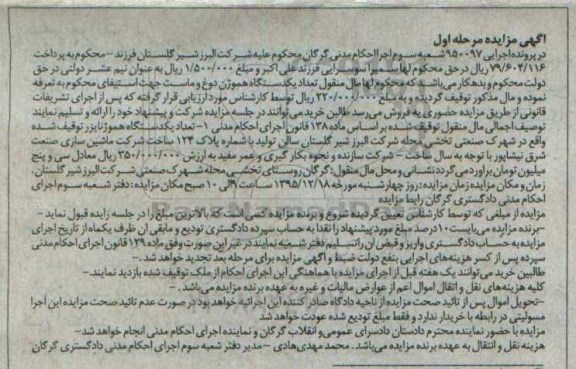 آگهی مزایده مرحله اول
در پرونده اجرایی ۹۵۰۰۹۷ شعبه سوم اجرا احکام مدنی گرگان محکوم علیه شرکت البرز شیر گلستان فرزند – محکوم به پرداخت
۷۹/۶۰۴/۱۱۶ ریال در حق محکوم لها سمیرا سوسرایی فرزند علی اکبر و مبلغ ۱/۵۰۰/۰۰۰ ریال به عنوان نیم عشر دولتی در حق
دولت محکوم و بدهکار می باشد که محکوم لها مال منقول تعداد یکدستگاه هموژن دوغ و ماست جهت استیفای محکوم به تعرفه
نموده و مال مذکور توقیف گردیده و مبلغ ۲۲۰/۰۰۰/۰۰۰ ریال توسط کارشناس مورد ارزیابی قرار گرفته که پس از اجرای تشریفات
قانونی از طریق مزایده حضوری به فروش می رسد طالبن خرید می توانند در جلسه مزایده شرکت و پیشنهاد خود را ارائه و تسلیم نمایند
توصیف اجمالی مال منقول توقیف شده بر اساس ماده ۱۳۸ قانون اجرای احکام مدنی ۱- تعداد یکدستگاه هموژنایزر توقیف شده
واقع در شهرک صنعتی نخشی محله شرکت البرز شیر گلستان سالن تولید با شماره پلاک ۱۲۴ ساخت شرکت ماشین سازی صنعت
شرق نیشابور با توجه به سال ساخت – شرکت سازنده و نحوه بکار گیری و عمر مفید به ارزش ۳۵۰/۰۰۰/۰۰۰ ریال معادل سی و پنج
میلیون تومان براورد می گردد نشانی و محل مال منقول: گرگان روستای نخشی محله شهرک صنعتی شرکت البرز شیر گلستان.
زمان و مکان مزایده زمان مزایده: روز چهارشنبه مورخه ۱۳۹۵/۱۲/۱۸ ساعت ۹ الی ۱۰ صبح مکان مزایده: دفتر شعبه سوم اجرای
احکام مدنی دادگستری گرگان رابط مزایده
مزایده از مبلغی که توسط کارشناس تعیین گردیده شروع و برنده مزایده کسی است که بالاترین مبلغ را در جلسه زایده قبول نماید –
-برنده مزایده می بایست ۱۰ درصد مبلغ مورد پیشنهاد را نقدا به حساب سپرده دادگستری تودیع و مابقی ان ظرف یکماه از تاریخ اجرای
مزایده به حساب دادگستری واریز و قبض ان را تسلیم دفتر شعبه نمایند در غیر این صورت وفق ماده ۱۲۹ قانون اجرای احکام مدنی
سپرده پس از کسر هزینه های اجرایی بنفع دولت ضبط و آگهی مزایده برای مرحله بعد تجدید خواهد شد. –
طالبین خرید می توانند یک هفته قبل از اجرای مزایده با هماهنگی این اجرای احکام از ملک توقیف شده بازدید نمایند.–
کلیه هزینه های نقل و انتقال اموال اعم از عوارض مالیات و غیره به عهده برنده مزایده می باشد. –
-تحویل اموال پس از تائید صحت مزایده از ناحیه دادگاه صادر کننده این اجرائیه خواهد بود در صورت عدم تائید صحت مزایده این اجرا
مسولیتی در رابطه با خریدار ندارد و فقط مبلغ تودیع شده عودت خواهد شد
مزایده با حضور نماینده محترم دادستان دادسرای عمومی و انقلاب گرگان و نماینده اجرای احکام مدنی انجام خواهد شد–
هزینه نقل و انتقال به عهده برنده مزایده می باشد. محمد مهدی هادی – مدیر دفتر شعبه سوم اجرای احکام مدنی دادگستری گرگان